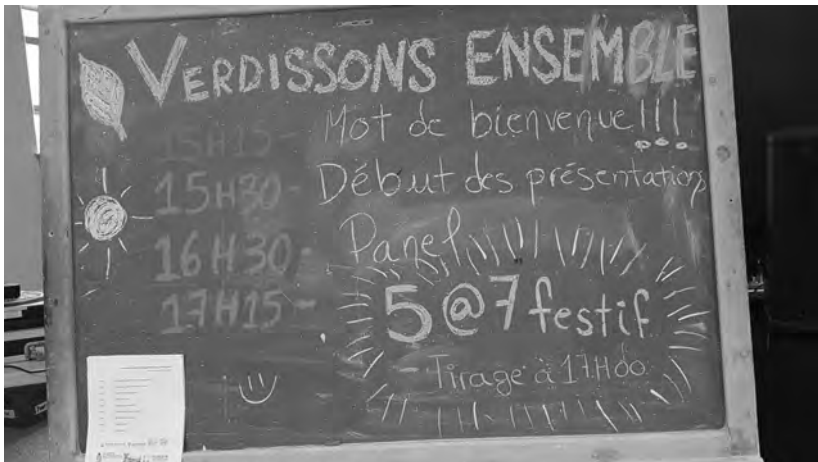 VERDISSONS ENSEMBLE
15H15- Mot de bienvenue!!!
15H30- Début des présentations
16H30- Panel
17H15- 5@7 festif
- Tirage à 17H00